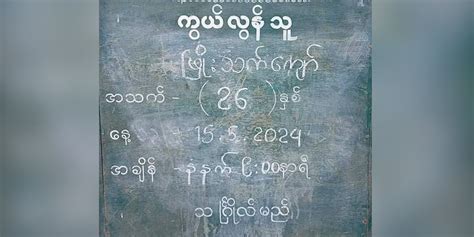 ကွယ်လွန်သူ
ဖြိုးသက်ကျော်
အသက် - (26) နှစ်
နေ့ - 15.5.2024
အချိန် - နံနက် ၆:၀၀နာရီ
သင်္ဂြိုလ်မည်